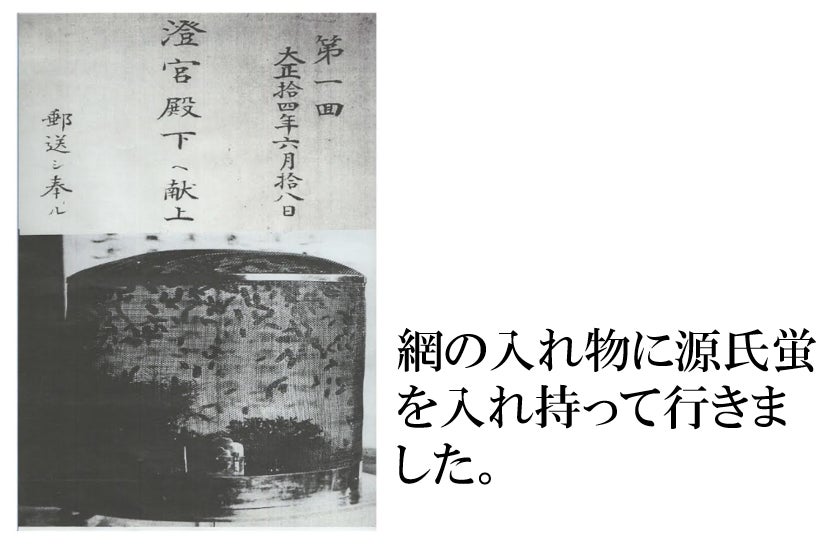 第一回
大正拾四年六月拾八日
澄宮殿下へ献上
郵送シ奉ル
網の入れ物に源氏蛍
を入れ持って行きま
した。